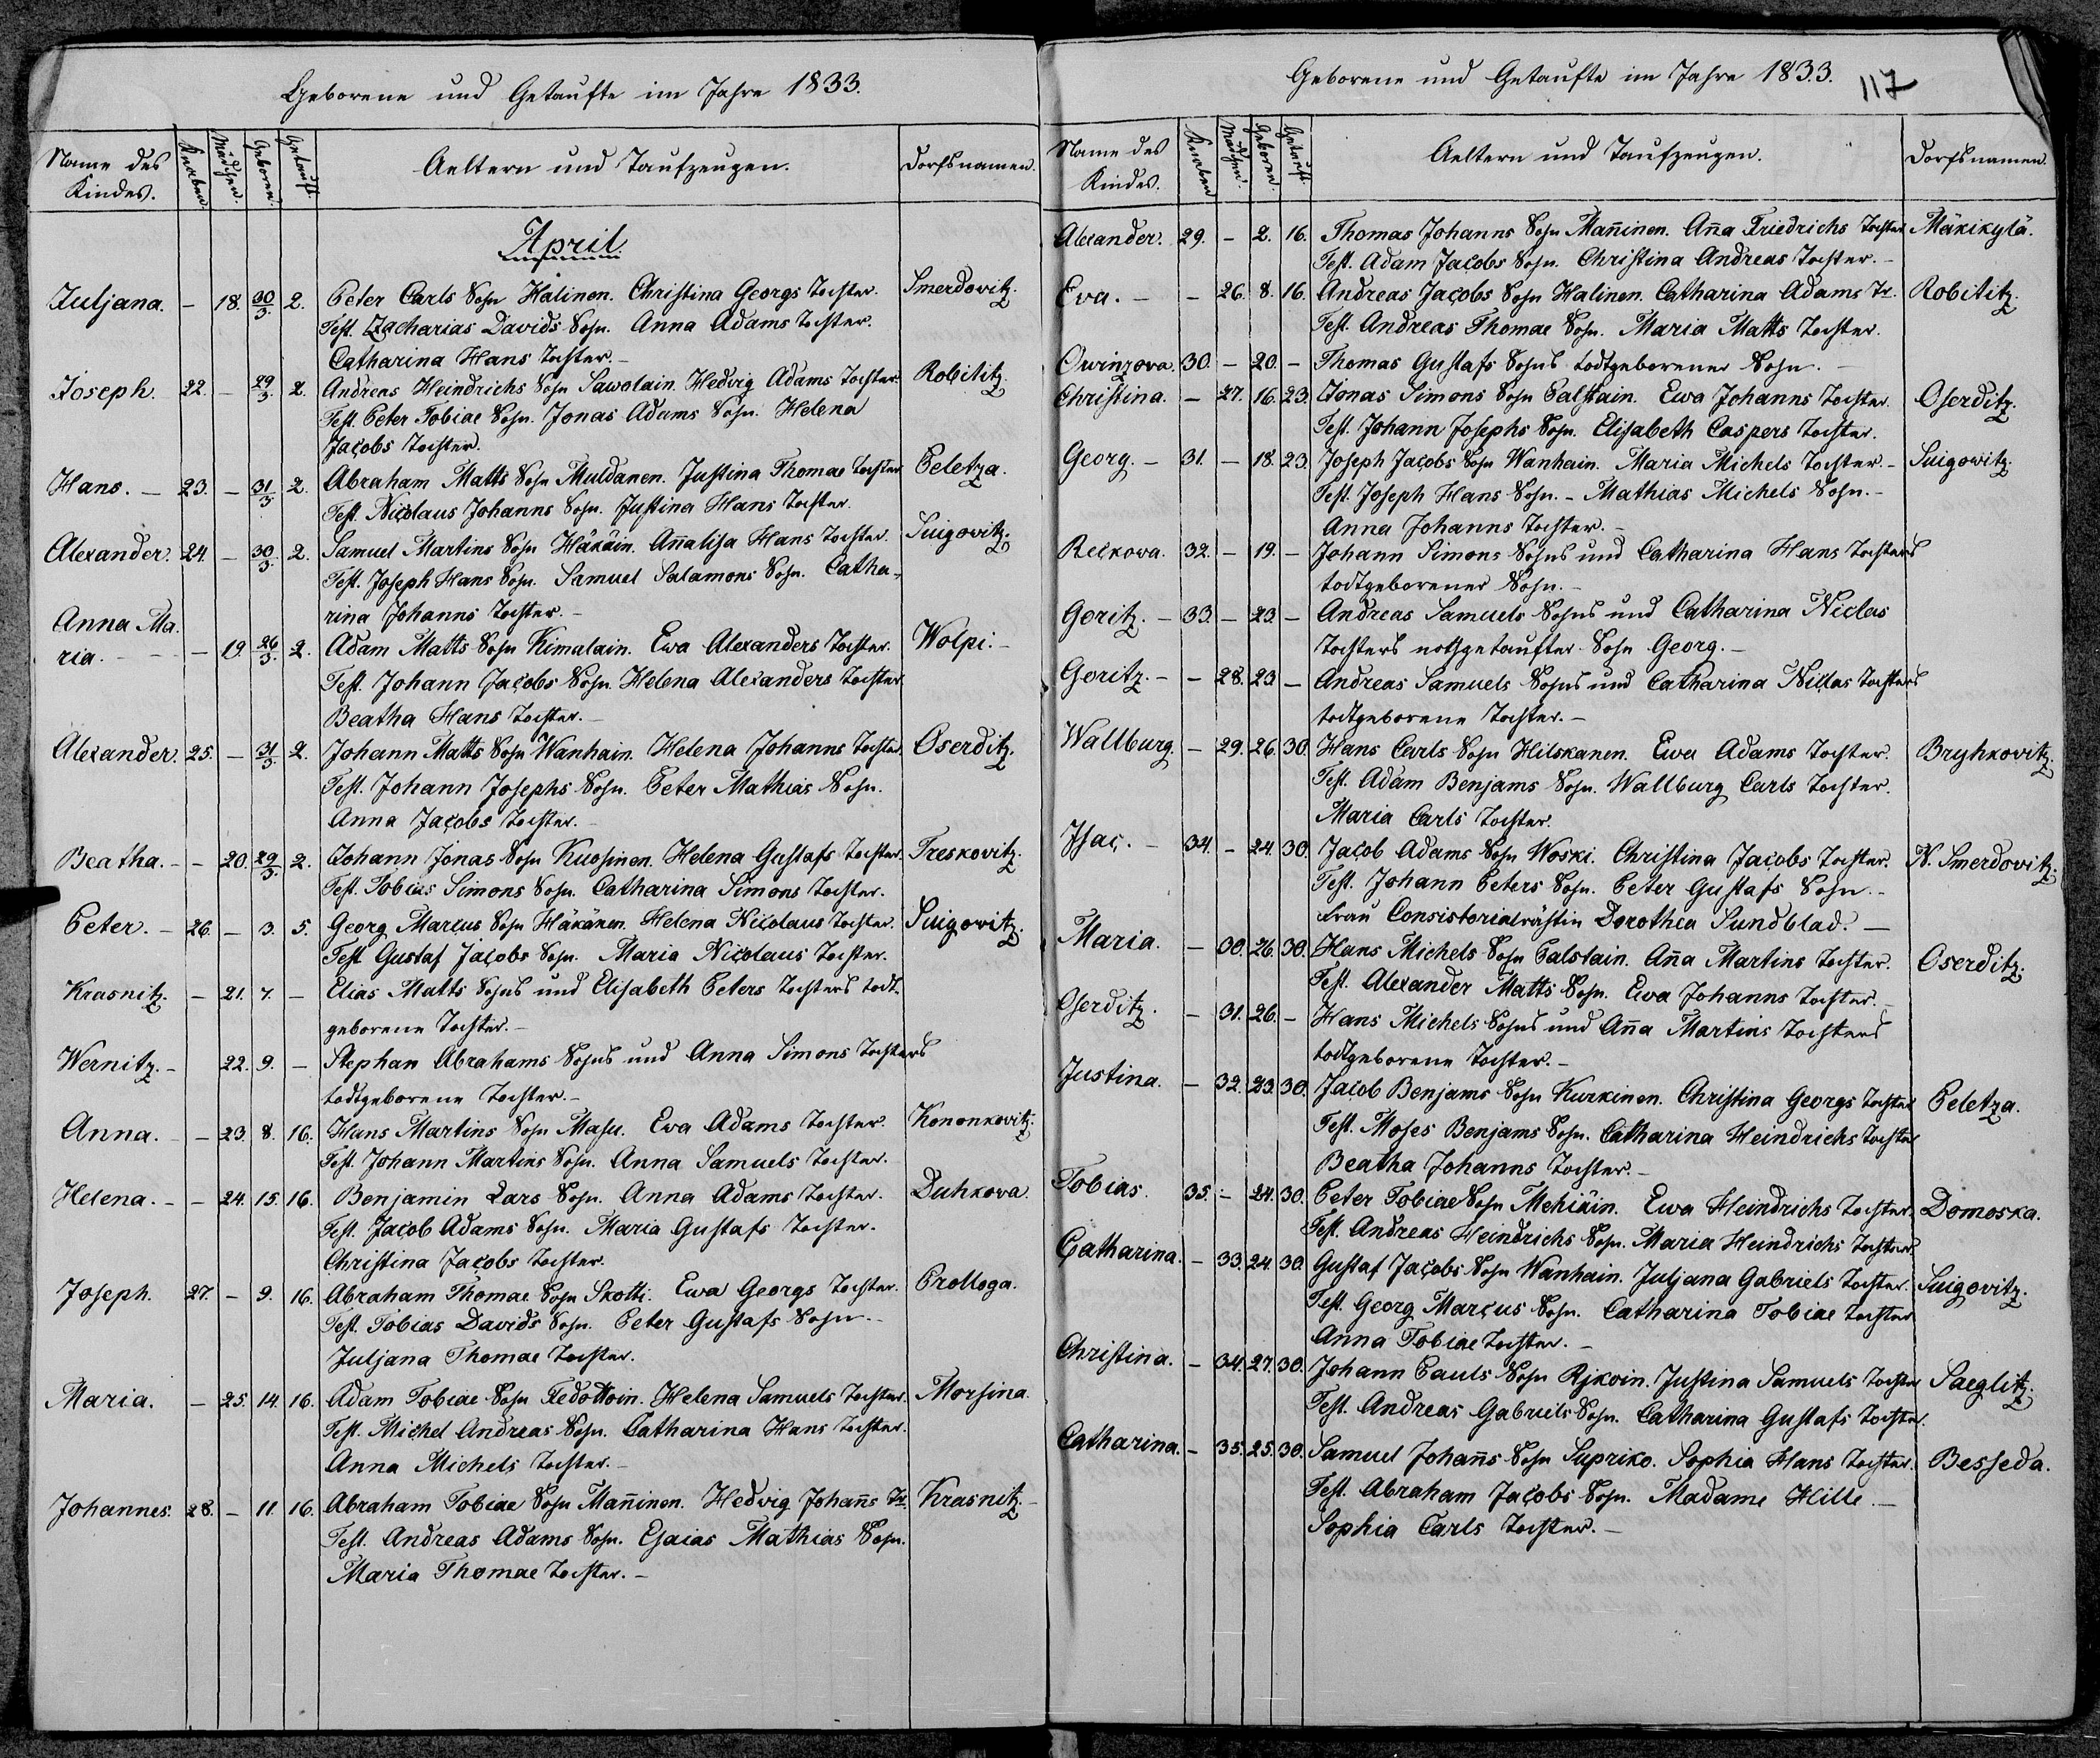 Geborene und Getaufte im Jahre 1833.
Name des Kindes. Knaben. Mädchen. Geboren. Getauft. Aeltern und Taufzeugen. Dorfsnamen.
April
Juljana. – 18. 30/3 2. Peter Carls Sohn Halinen. Christina Georgs Tochter. Smerdovitz.
Test. Zacharias Davids Sohn. Anna Adams Tochter.
Catharina Hans Tochter. –
Joseph. 22. – 29/3 2. Andreas Heindrichs Sohn Sawolain. Hedvig Adams Tochter. Robititz.
Test. Peter Tobiae Sohn. Jonas Adams Sohn. Helena
Jacobs Tochter.
Hans. – 23. – 31/3 2. Abraham Matts Sohn Muldanen. Justina Thomae Tochter. Peletza.
Test. Nicolaus Johanns Sohn. Justina Hans Tochter.
Alexander. 24. – 30/3 2. Samuel Martins Sohn Häkäin. Añalisa Hans Tochter. Suigowitz.
Test. Joseph Hans Sohn. Samuel Salamons Sohn. Catha-
rina Johanns Tochter. –
Anna Ma
ria. – – 19. 26/3 2. Adam Matts Sohn Kimalain. Ewa Alexanders Tochter. Wolpi. –
Test. Johann Jacobs Sohn. Helena Alexanders Tochter
Beatha Hans Tochter. –
Alexander. 25. – 31/3 2. Johann Matts Sohn Wanhain. Helena Johanns Tochter. Oserditz.
Test. Johann Josephs Sohn. Peter Mathias Sohn.
Anna Jacobs Tochter. –
Beatha. – – 20. 29/3 2. Johann Jonas Sohn Kuosinen. Helena Gustafs Tochter. Treskovitz.
Test. Tobias Simons Sohn. Catharina Simons Tochter.
Peter. – 26. – 3. 5. Georg Marcus Sohn Häkänen. Helena Nicolaus Tochter. Suigowitz.
Test Gustaf Jacobs Sohn. Maria Nicolaus Tochter.
Krasnitz. – 21. 7. – Elias Matts Sohns und Elisabeth Peters Tochters todt-
geborene Tochter. –
Wernitz. – 22. 9. – Stephan Abrahams Sohns und Anna Simons Tochters
todtgeborene Tochter. –
Anna. – – 23. 8. 16. Hans Martins Sohn Masu. Ewa Adams Tochter. Kononkovitz.
Test. Johann Martins Sohn. Anna Samuels Tochter.
Helena. – – 24. 15. 16. Benjamin Lars Sohn. Anna Adams Tochter. Duhkova.
Test. Jacob Adams Sohn. Maria Gustafs Tochter.
Christina Jacobs Tochter.
Joseph. 27. – 9. 16. Abraham Thomae Sohn Skotti. Ewa Georgs Tochter. Prologa.
Test. Tobias Davids Sohn. Peter Gustafs Sohn. –
Juljana Thomae Tochter.
Maria. – 25. 14. 16. Adam Tobiae Sohn Fedottoin. Helena Samuels Tochter. Morsina.
Test. Michel Andreas Sohn. Catharina Hans Tochter.
Anna Michels Tochter. –
Johannes. 28. – 11. 16. Abraham Tobiae Sohn Mañinen. Hedvig Johañs Tr. Krasnitz. –
Test. Andreas Adams Sohn. Esaias Mathias Sohn.
Maria Thomae Tochter. –
Geborene und Getaufte im Jahre 1833. 117
Name des Kindes. Knaben Mädchen. Geboren. Getauft. Aeltern und Taufzeugen. Dorfsnamen.
Alexander. 29. – 2. 16. Thomas Johanns Sohn Mañinen. Aña Friedrichs Tochter Mäkikylä.
Test. Adam Jacobs Sohn. Christina Andreas Tochter. –
Eva. – – 26. 8. 16. Andreas Jacobs Sohn Halinen. Catharina Adams Tr. Robititz.
Test. Andreas Thomae Sohn. Maria Matts Tochter.
Owinzova. 30. – 20. – Thomas Gustafs Sohns todtgeborener Sohn. –
Christina. – 27. 16. 23. Jonas Simons Sohn Palstain. Ewa Johanns Tochter. Oserditz.
Test. Johann Josephs Sohn. Elisabeth Caspers Tochter.
Georg. – 31. – 18. 23. Joseph Jacobs Sohn Wanhain. Maria Michels Tochter. – Suigowitz.
Test. Joseph Hans Sohn. – Mathias Michels Sohn. –
Anna Johanns Tochter. –
Reckowa. 32. – 19. – Johann Simons Sohns und Catharina Hans Tochters
todtgeborener Sohn. –
Goritz. – 33. – 23. – Andreas Samuels Sohns und Catharina Niclas
Tochters nothgetaufter Sohn Georg. –
Goritz. – – 28. 23. – Andreas Samuels Sohns und Catharina Niclas Tochters
todtgeborene Tochter. –
Wallburg. – 29. 26. 30. Hans Carls Sohn Hilskanen. Ewa Adams Tochter. Bryhkovitz.
Test. Adam Benjams Sohn. Wallburg Carls Tochter.
Maria Carls Tochter.
Isac. – 34. – 24. 30. Jacob Adams Sohn Woski. Christina Jacobs Tochter. N. Smerdovitz.
Test. Johann Peters Sohn. Peter Gustafs Sohn. –
Frau Consistorialräthin Dorothea Sundblad. –
Maria. – 30. 26. 30. Hans Michels Sohn Palstain. Aña Martins Tochter. Oserditz.
Test. Alexander Matts Sohn. Ewa Johanns Tochter. –
Oserditz. – 31. 26. – Hans Michels Sohns und Aña Martins Tochters
todtgeborene Tochter. –
Justina. – 32. 23. 30. Jacob Benjams Sohn Kurkinen. Christina Georgs Tochter Peletza.
Test. Moses Benjams Sohn. Catharina Heindrichs Tochter
Beatha Johanns Tochter. –
Tobias. 35. – 24. 30. Peter Tobiae Sohn Mehiäin. Ewa Heindrichs Tochter. Domoska.
Test. Andreas Heindrichs Sohn. Maria Heindrichs Tochter
Catharina. – 33. 24. 30. Gustaf Jacobs Sohn Wanhain. Juljana Gabriels Tochter. Suigovitz.
Test. Georg Marcus Sohn. Catharina Tobiae Tochter
Anna Tobiae Tochter. –
Christina. – 34. 27. 30. Johann Pauls Sohn Rjkoin. Justina Samuels Tochter Saeglitz.
Test. Andreas Gabriels Sohn. Catharina Gustafs Tochter.
Catharina. – 35. 25. 30. Samuel Johañs Sohn Supriko. Sophia Hans Tochter. Besseda.
Test. Abraham Jacobs Sohn. Madame Hille. –
Sophia Carls Tochter. –